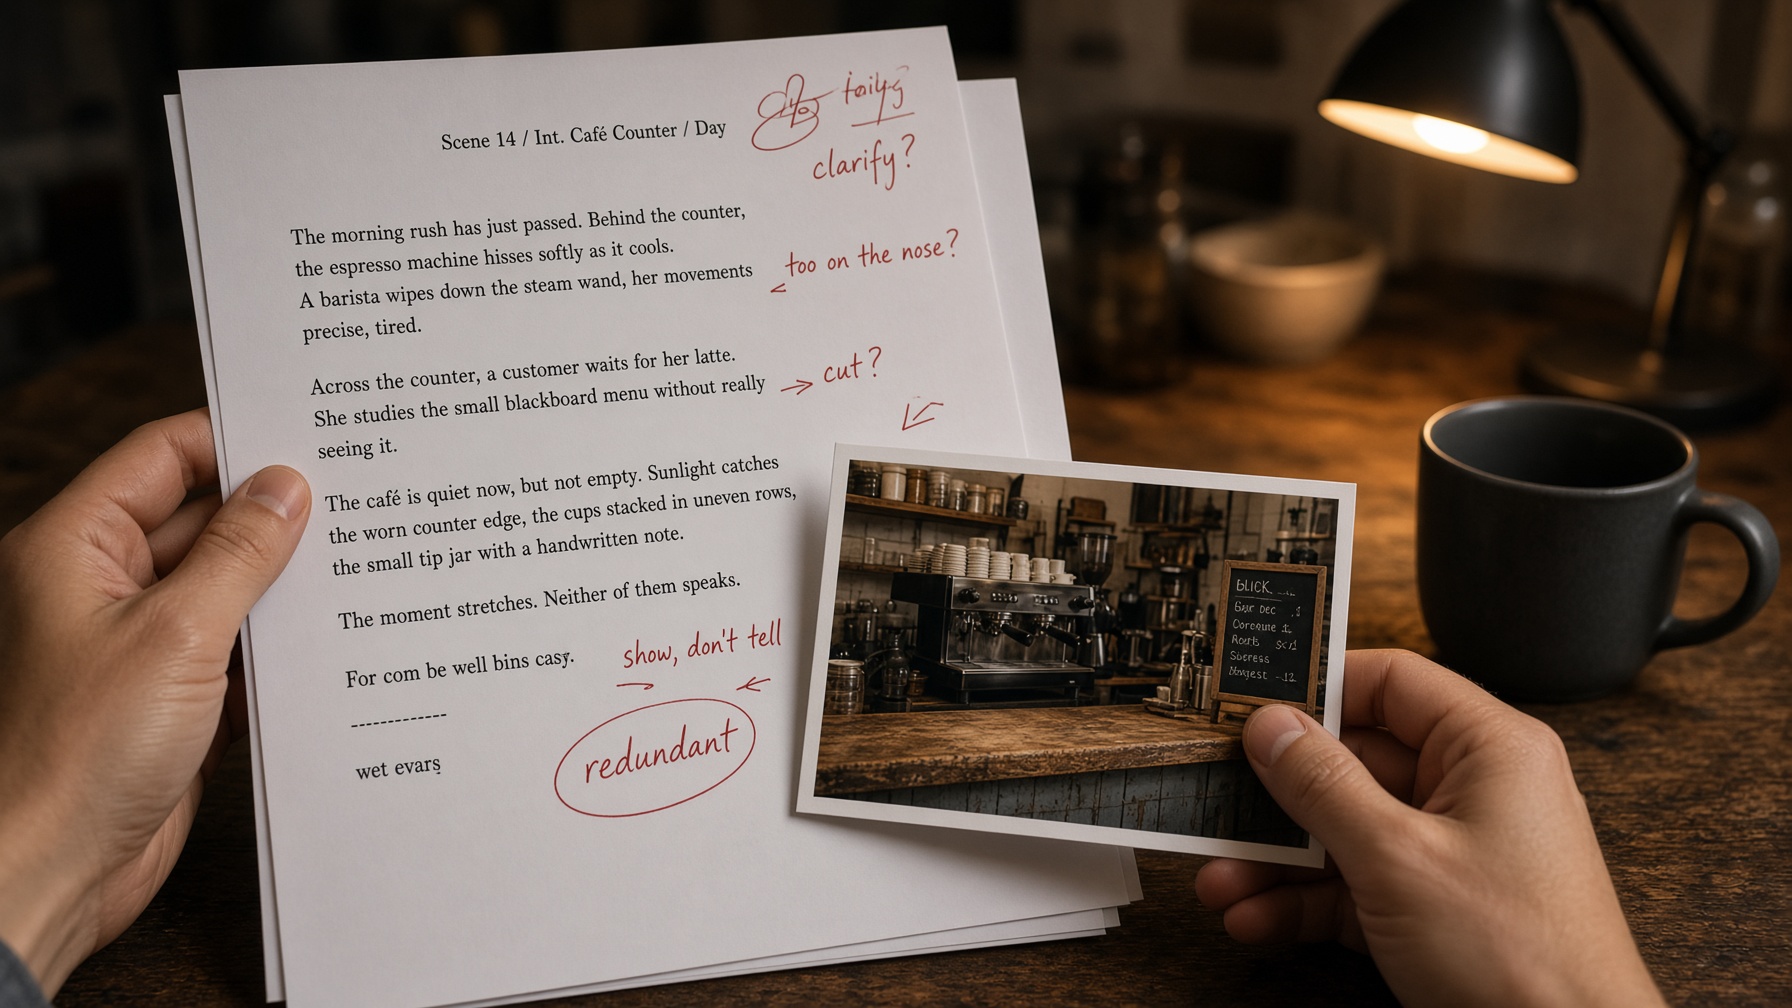 Scene 14 / Int. Café Counter / Day
clarify?
The morning rush has just passed. Behind the counter,
the espresso machine hisses softly as it cools.
A barista wipes down the steam wand, her movements
precise, tired.
too on the nose?
Across the counter, a customer waits for her latte.
She studies the small blackboard menu without really
seeing it.
cut?
The café is quiet now, but not empty. Sunlight catches
the worn counter edge, the cups stacked in uneven rows,
the small tip jar with a handwritten note.
The moment stretches. Neither of them speaks.
For com be well bins casy.
show, don't tell
redundant
wet evars